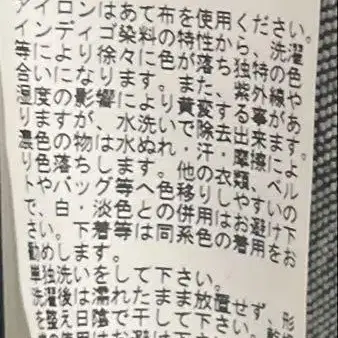 アイロンはあて布を使用ください。
インディゴ染料の特性から、洗濯
等により徐々に色が落ち、独特の色
合いになります。また、紫外線や
湿度の影響により黄変する事があ
りますが、水洗いで除去出来ます。
濃色の物は水ぬれ・汗・摩擦により
色落ちし、他の衣類、ベル
トやバッグ等へ色移りしますの
で、白・淡色との併用はお避け下
さい。下着等は同系色の着用をお
勧めします。
単独洗いをして下さい。
洗濯後は濡れたまま放置せず、形
を整え日陰で干して下さい。乾
の使用はお避け下さ